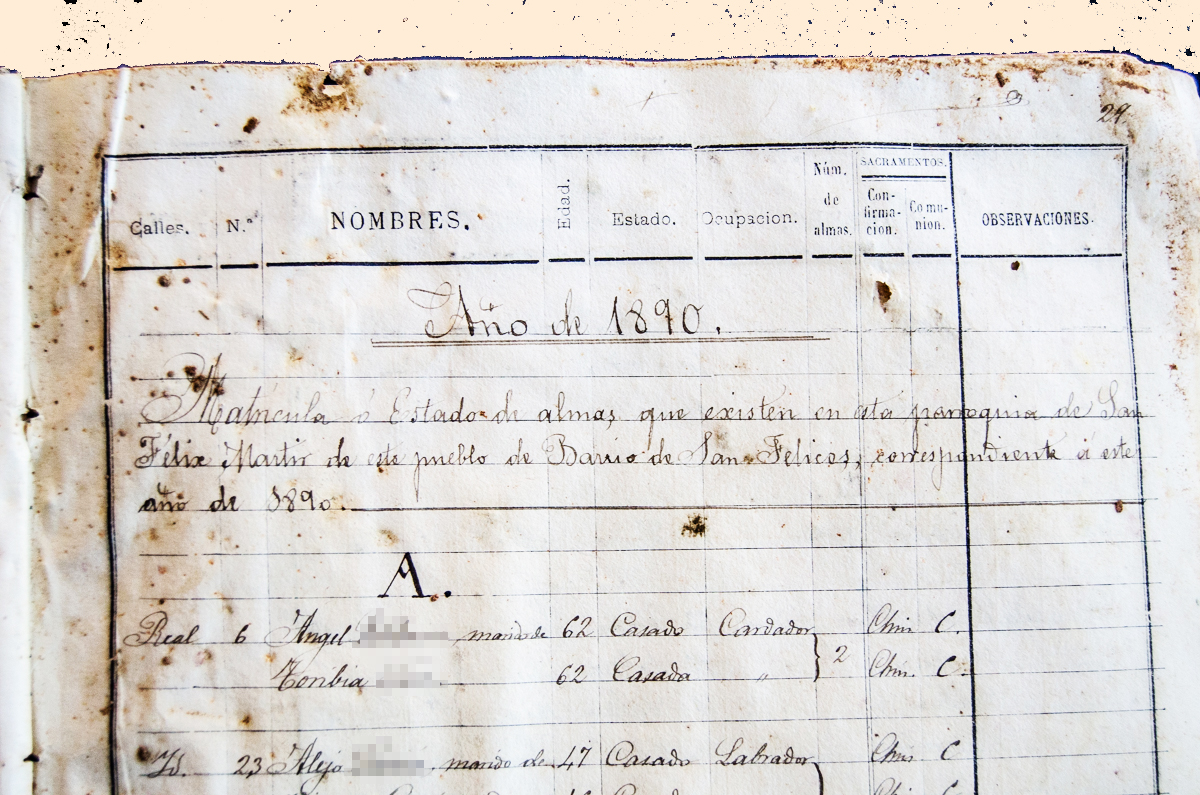 29
Calles. N.º NOMBRES. Edad. Estado. Ocupacion. Núm. de almas. SACRAMENTOS. Con-firma-cion. Comu-nion. OBSERVACIONES.
Año de 1890.
Matrícula ó Estado de almas, que existen en esta parroquia de San
Félix Martir de este pueblo de Barrio de San Felices, correspondiente á este
año de 1890.
A.
Real 6 Ángel marido de 62 Casado Cardador 2 Chm. C.
Toribia 62 Casada " Chm. C.
Id. 23 Alejo marido de 47 Casado Labrador Chm. C